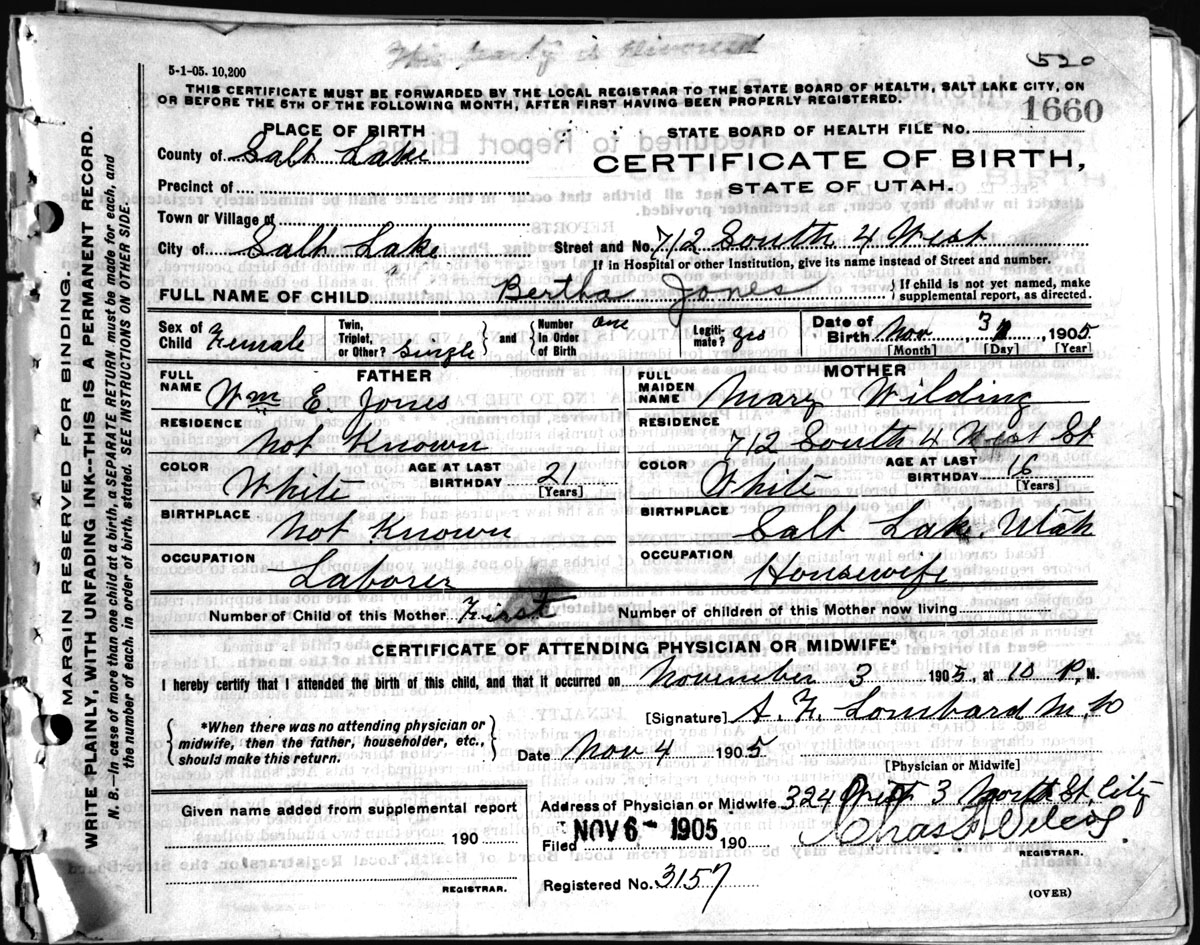 This party is Divorced
520
5-1-05. 10,200
THIS CERTIFICATE MUST BE FORWARDED BY THE LOCAL REGISTRAR TO THE STATE BOARD OF HEALTH, SALT LAKE CITY, ON
OR BEFORE THE 5TH OF THE FOLLOWING MONTH, AFTER FIRST HAVING BEEN PROPERLY REGISTERED.
1660
PLACE OF BIRTH
STATE BOARD OF HEALTH FILE NO.
County of Salt Lake
CERTIFICATE OF BIRTH,
STATE OF UTAH.
Precinct of
Town or Village of
City of Salt Lake Street and No. 712 South 4 West
If in Hospital or other Institution, give its name instead of Street and number.
FULL NAME OF CHILD Bertha Jones { If child is not yet named, make
supplemental report, as directed.
Sex of Child Female
Twin, Triplet, or Other? Single } and { Number In Order of Birth one
Legiti-mate? yes
Date of Birth Nov 3, 1905
[Month] [Day] [Year]
FATHER
FULL NAME Wm E. Jones
RESIDENCE Not Known
COLOR White AGE AT LAST BIRTHDAY 21
[Years]
BIRTHPLACE Not Known
OCCUPATION Laborer
MOTHER
FULL MAIDEN NAME Mary Wilding
RESIDENCE 712 South 4 West St
COLOR White AGE AT LAST BIRTHDAY 16
[Years]
BIRTHPLACE Salt Lake, Utah
OCCUPATION Housewife
Number of Child of this Mother First Number of children of this Mother now living
CERTIFICATE OF ATTENDING PHYSICIAN OR MIDWIFE*
I hereby certify that I attended the birth of this child, and that it occurred on November 3 1905, at 10 P. M.
{ *When there was no attending physician or
midwife, then the father, householder, etc.,
should make this return. }
[Signature] A. F. Lombard M.D
Date Nov 4 1905
[Physician or Midwife]
Given name added from supplemental report
190
REGISTRAR.
Address of Physician or Midwife. 324 West 3 North St. City
Filed NOV 6- 1905 190 Chas F Wilcox
REGISTRAR.
Registered No. 3157
(OVER)
MARGIN RESERVED FOR BINDING.
WRITE PLAINLY, WITH UNFADING INK--THIS IS A PERMANENT RECORD.
N. B.--In case of more than one child at a birth, a SEPARATE RETURN must be made for each, and
the number of each, in order of birth, stated. SEE INSTRUCTIONS ON OTHER SIDE.